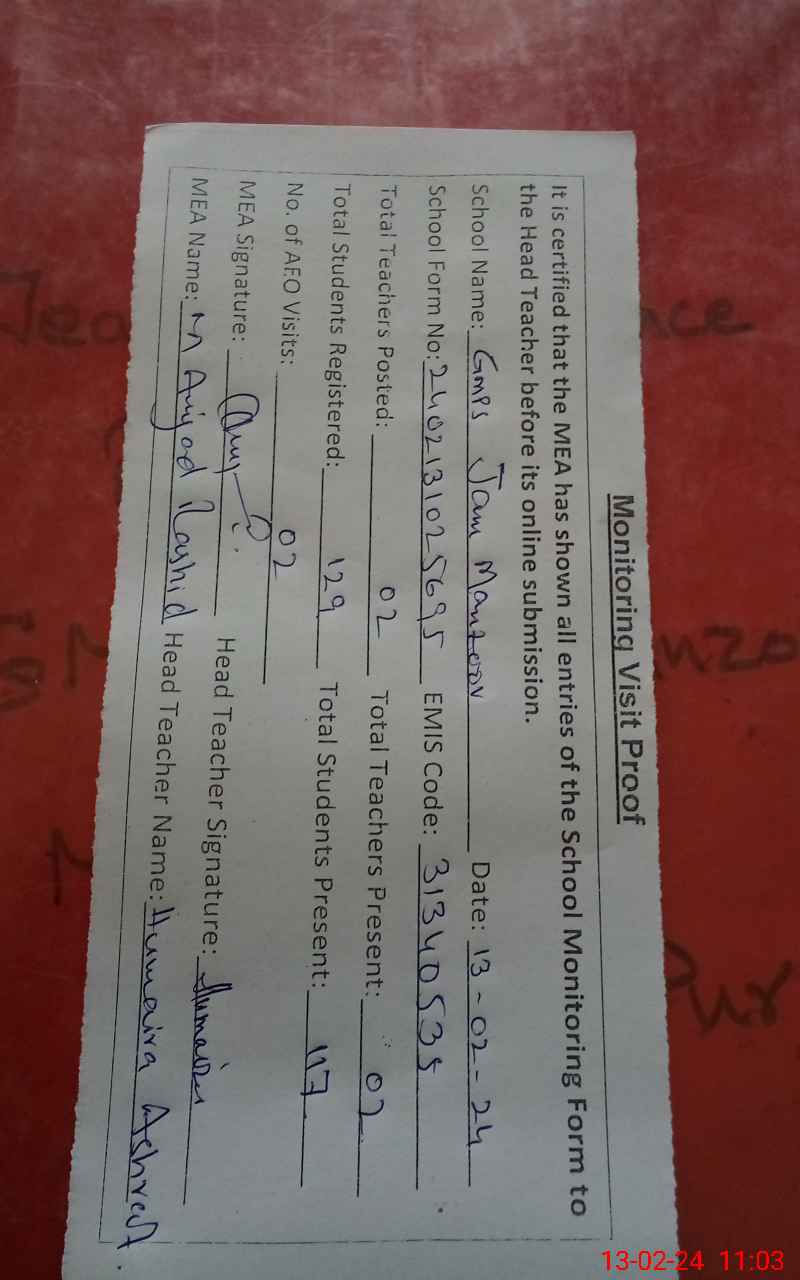 Monitoring Visit Proof
It is certified that the MEA has shown all entries of the School Monitoring Form to
the Head Teacher before its online submission.
School Name: GMPS Jam Manzoor Date: 13-02-24
School Form No: 2402131025695 EMIS Code: 31340535
Total Teachers Posted: 02 Total Teachers Present: 02
Total Students Registered: 129 Total Students Present: 117
No. of AEO Visits: 02
MEA Signature: Head Teacher Signature: Humaira
MEA Name: M Rashid Head Teacher Name: Humaira Ashraf
13-02-24 11:03